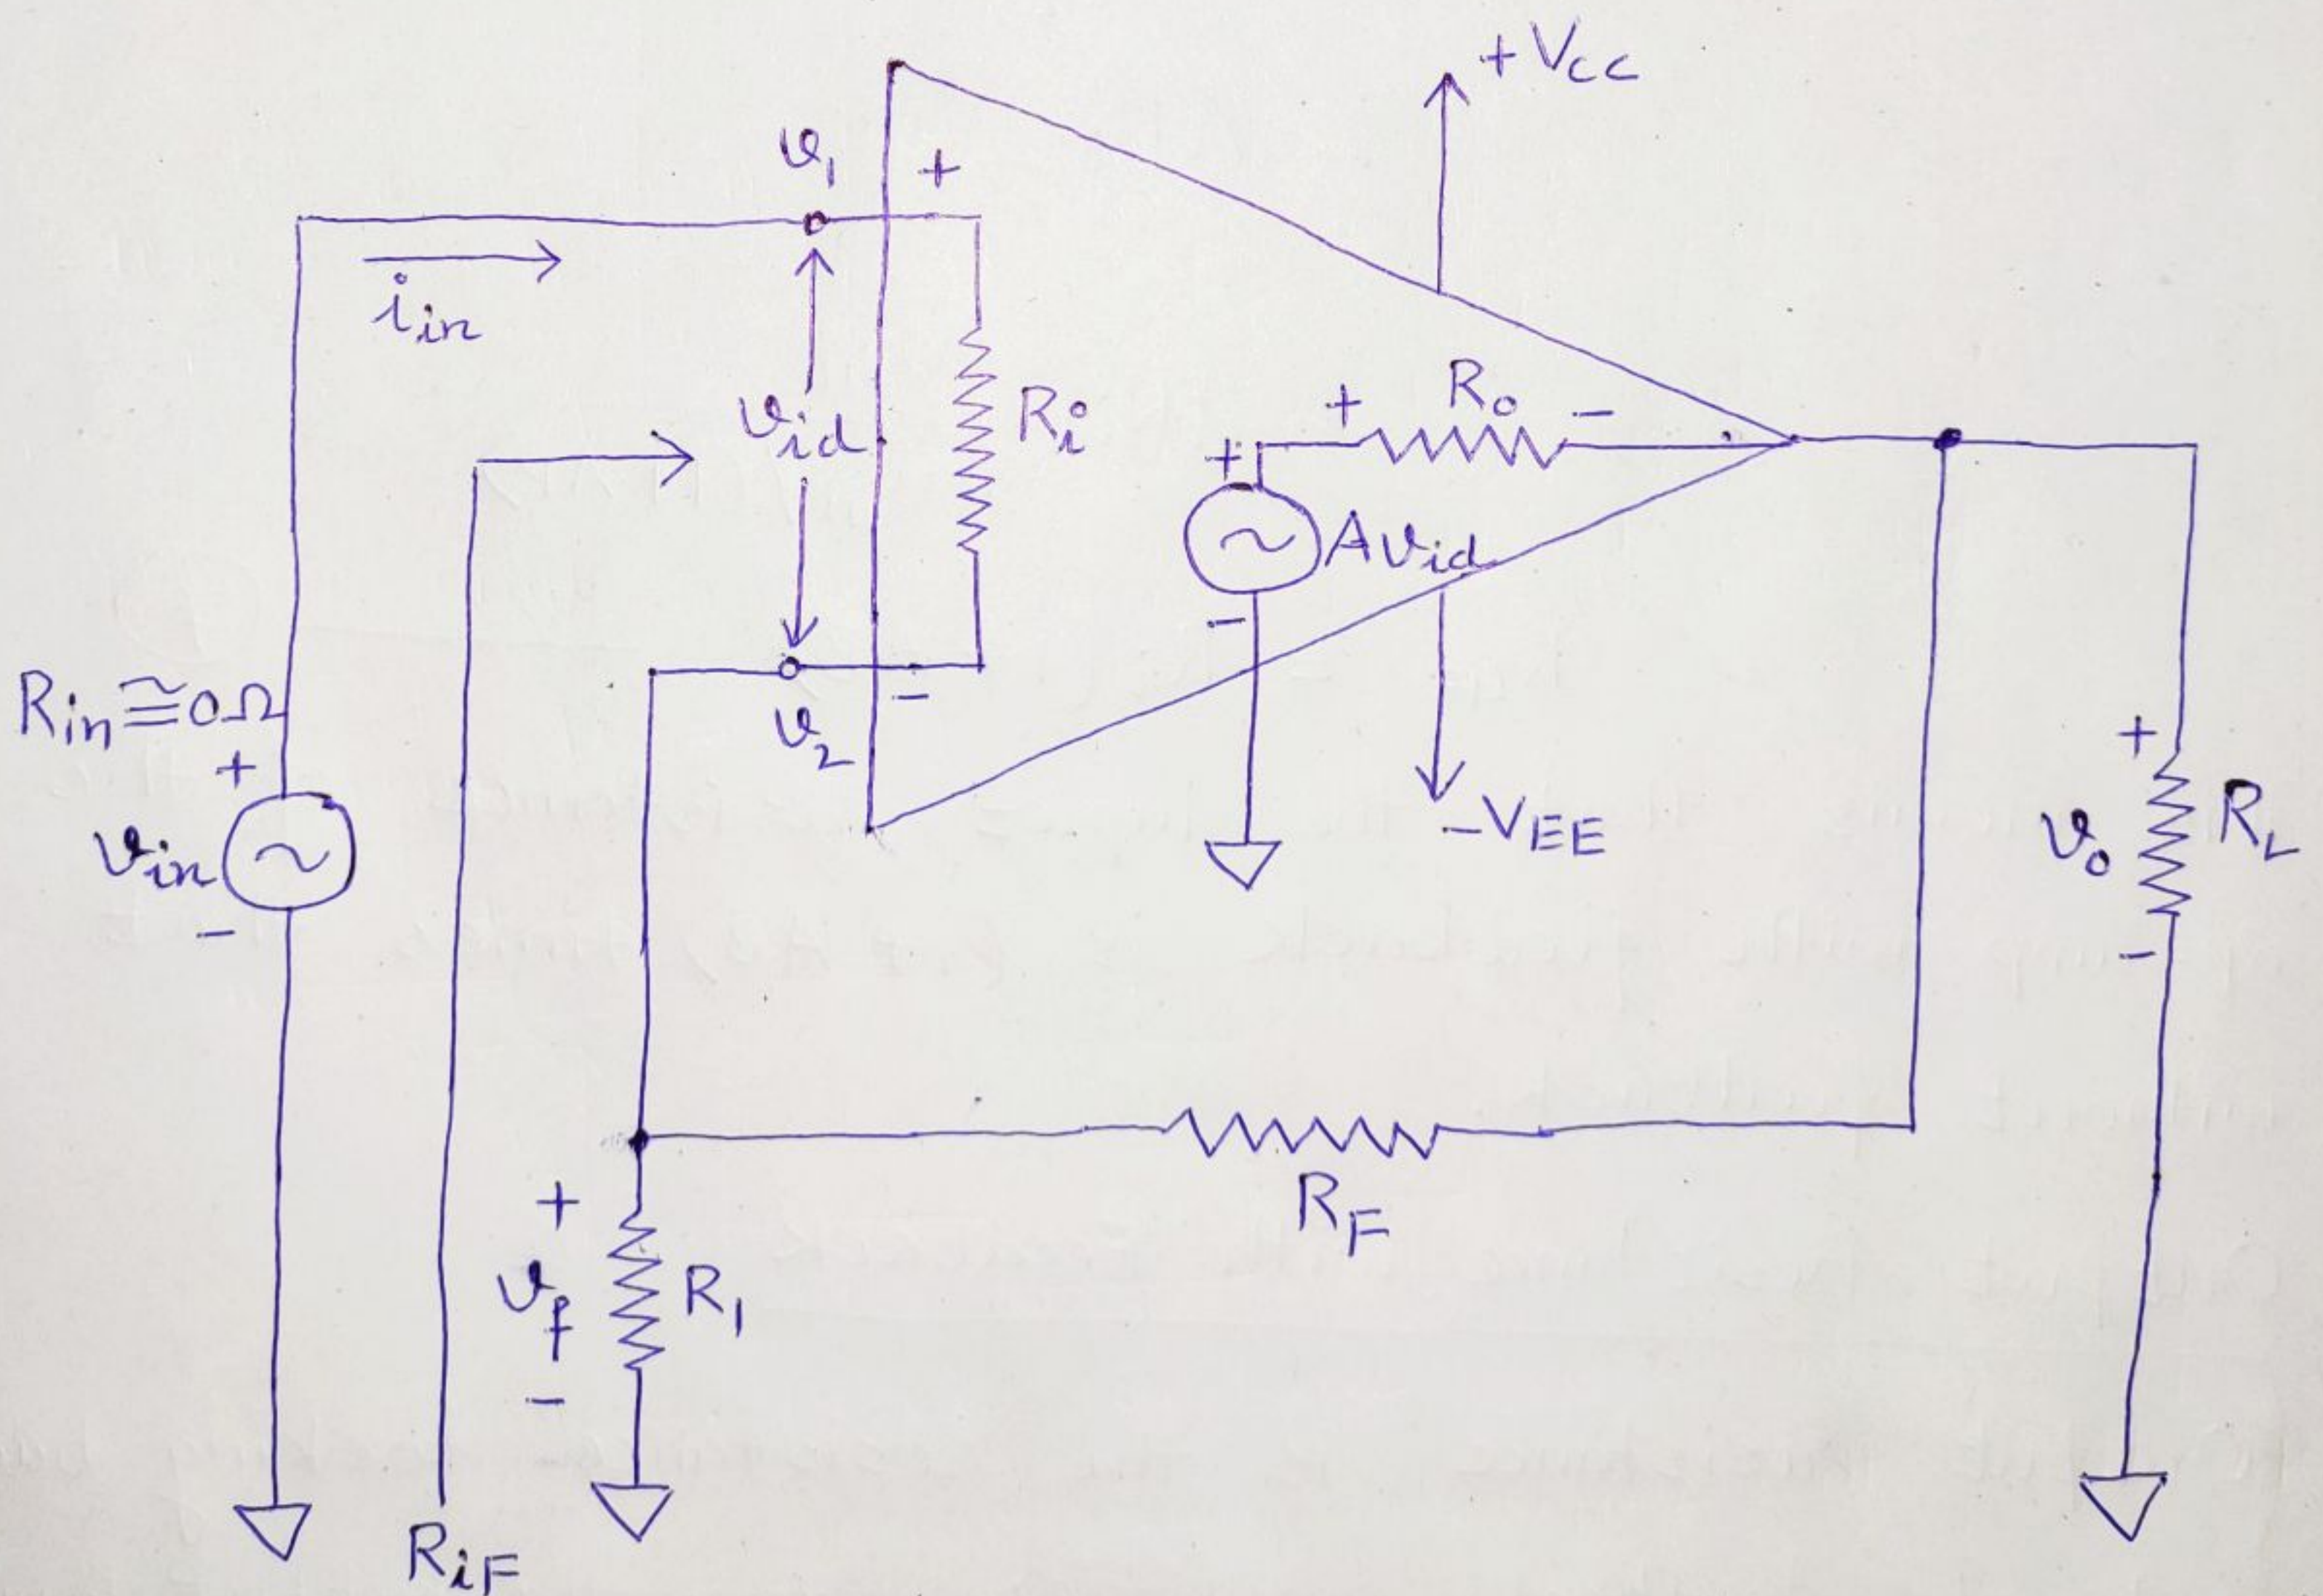 +VCC
v1
+
iin
vid
Ri
+ Ro −
+
~ Avid
−
Rin ≅ 0Ω
+
vin ~
−
−
v2
−VEE
+
vo RL
−
RF
+
vf R1
−
RiF